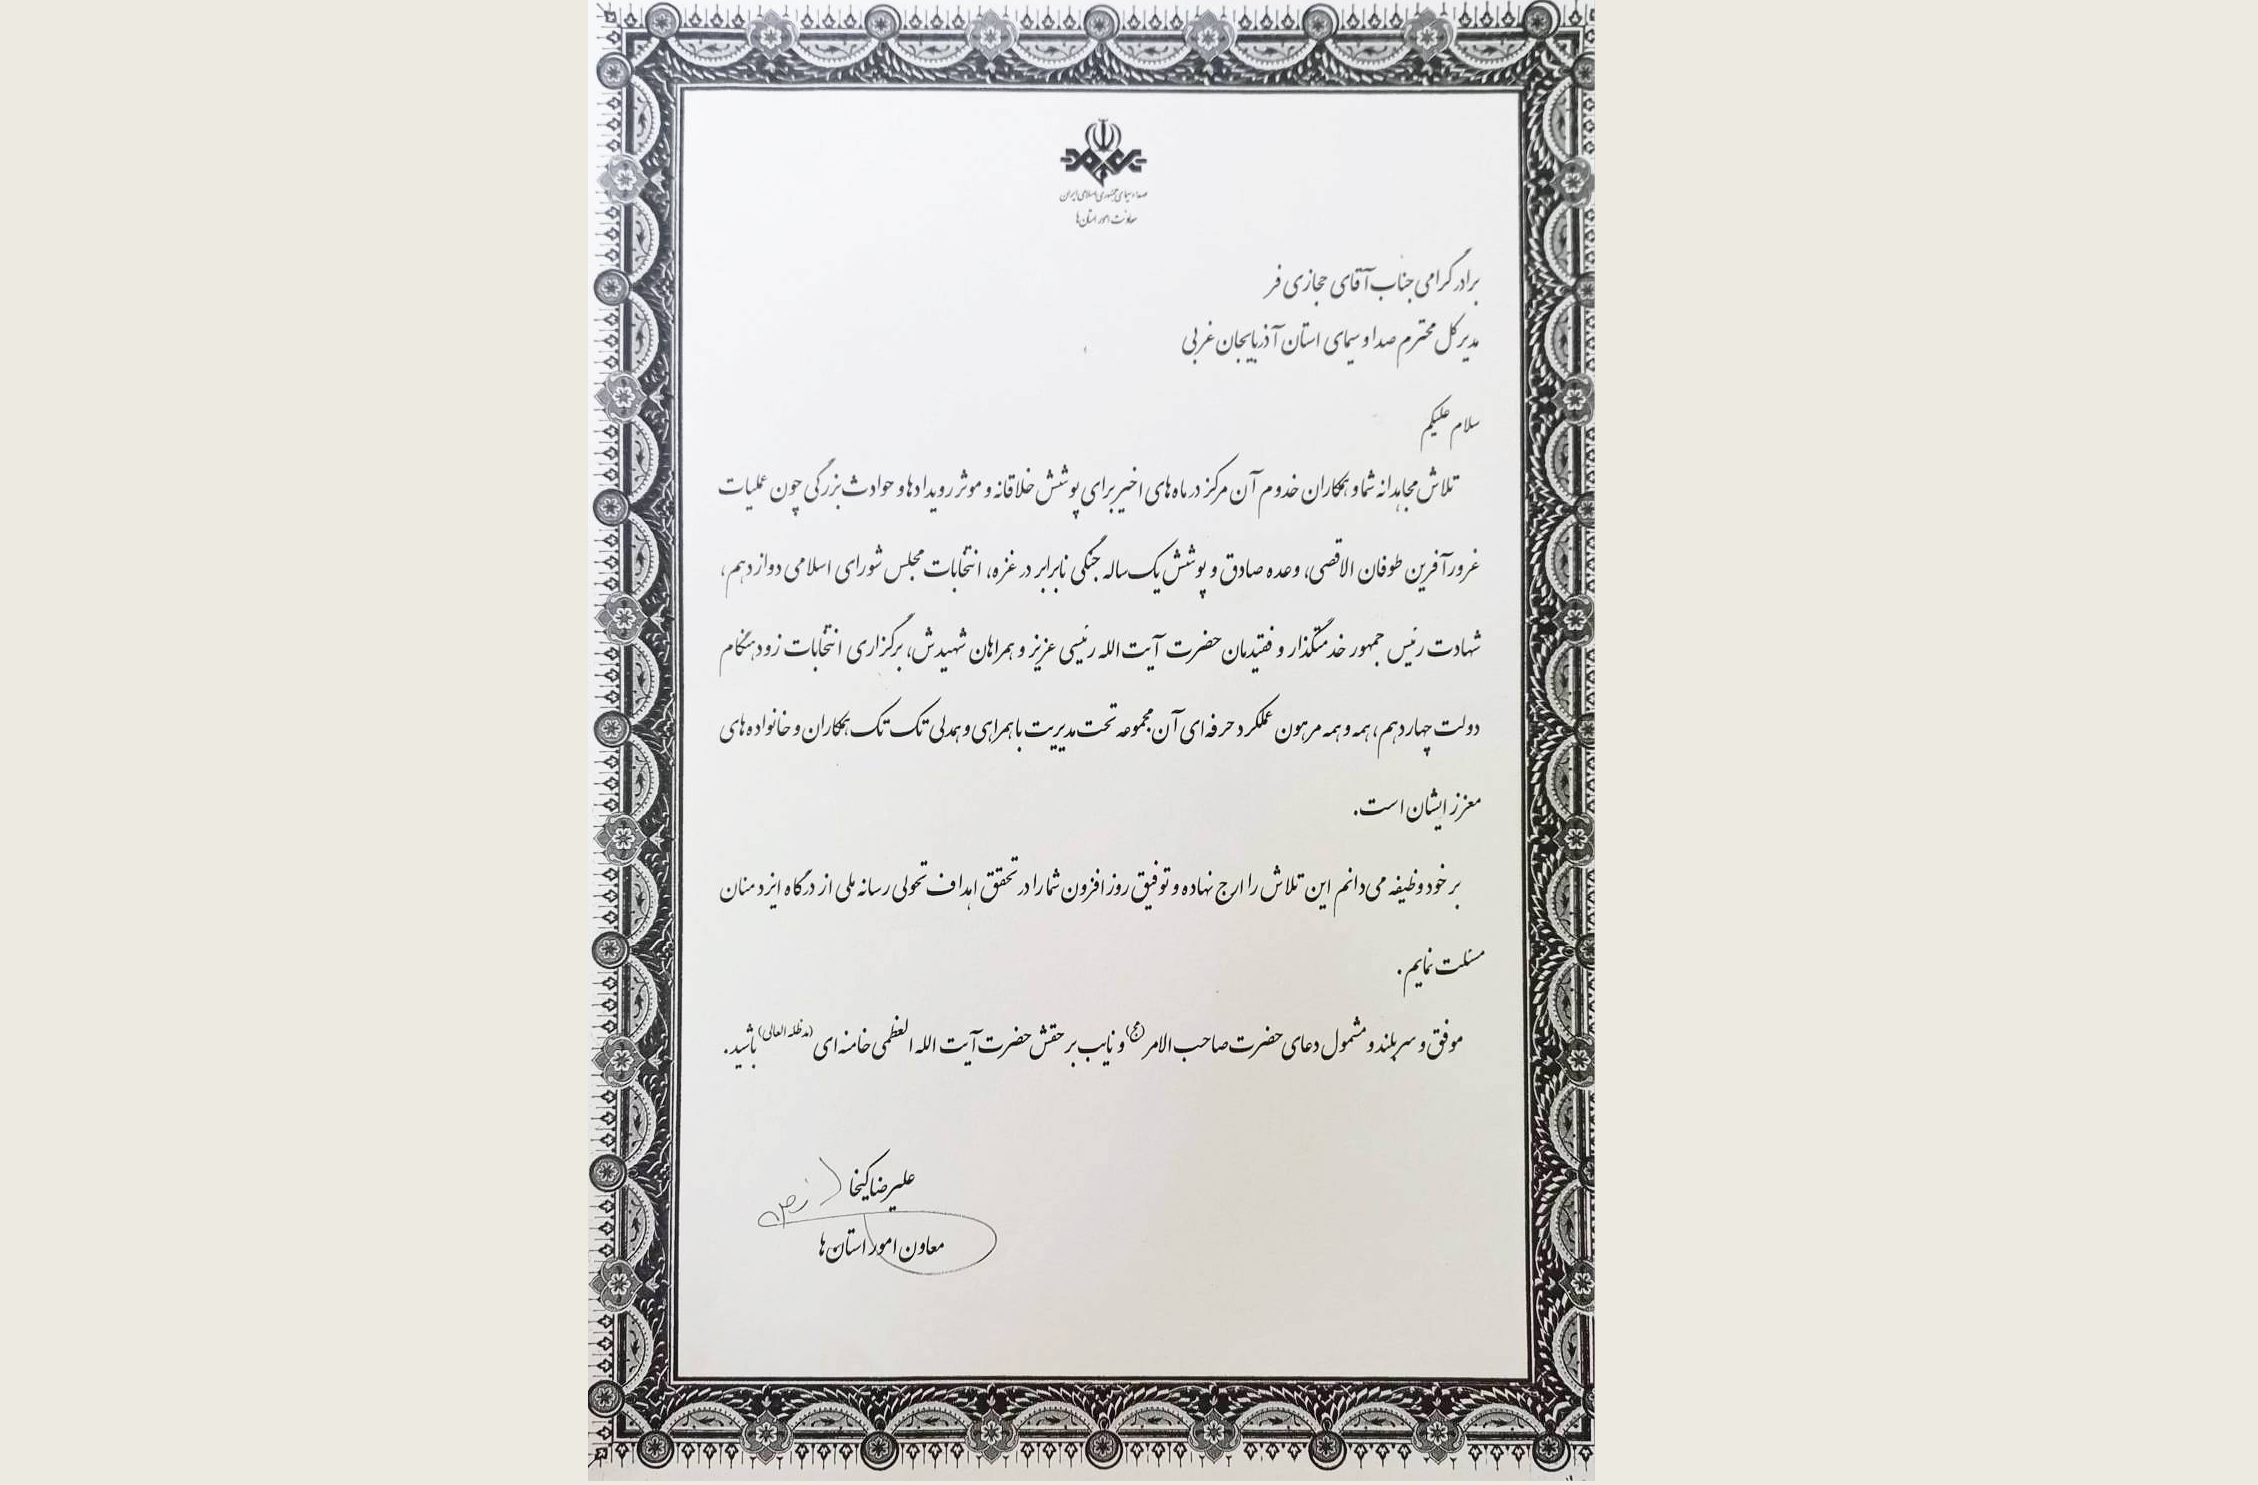 صدا و سیمای جمهوری اسلامی ایران
معاونت امور استان‌ها
برادر گرامی جناب آقای حجازی فر
مدیر کل محترم صدا و سیمای استان آذربایجان غربی
سلام علیکم
تلاش مجاهدانه شما و همکاران خدوم آن مرکز در ماه های اخیر برای پوشش خلاقانه و موثر رویدادها و حوادث بزرگی چون عملیات
غرورآفرین طوفان الاقصی، وعده صادق و پوشش یک ساله جنگی نابرابر در غزه، انتخابات مجلس شورای اسلامی دوازدهم،
شهادت رئیس جمهور خدمتگذار و فقیدمان حضرت آیت الله رئیسی عزیز و همراهان شهیدش، برگزاری انتخابات زودهنگام
دولت چهاردهم، همه و همه مرهون عملکرد حرفه ای آن مجموعه تحت مدیریت با همراهی و همدلی تک تک همکاران و خانواده های
معزز ایشان است.
بر خود وظیفه می دانم این تلاش را ارج نهاده و توفیق روز افزون شما را در تحقق اهداف تحولی رسانه ملی از درگاه ایزد منان
مسئلت نمایم.
موفق و سربلند و مشمول دعای حضرت صاحب الامر (عج) و نایب بر حقش حضرت آیت الله العظمی خامنه ای (مدظله العالی) باشید.
علیرضا کیخا
معاون امور استان ها